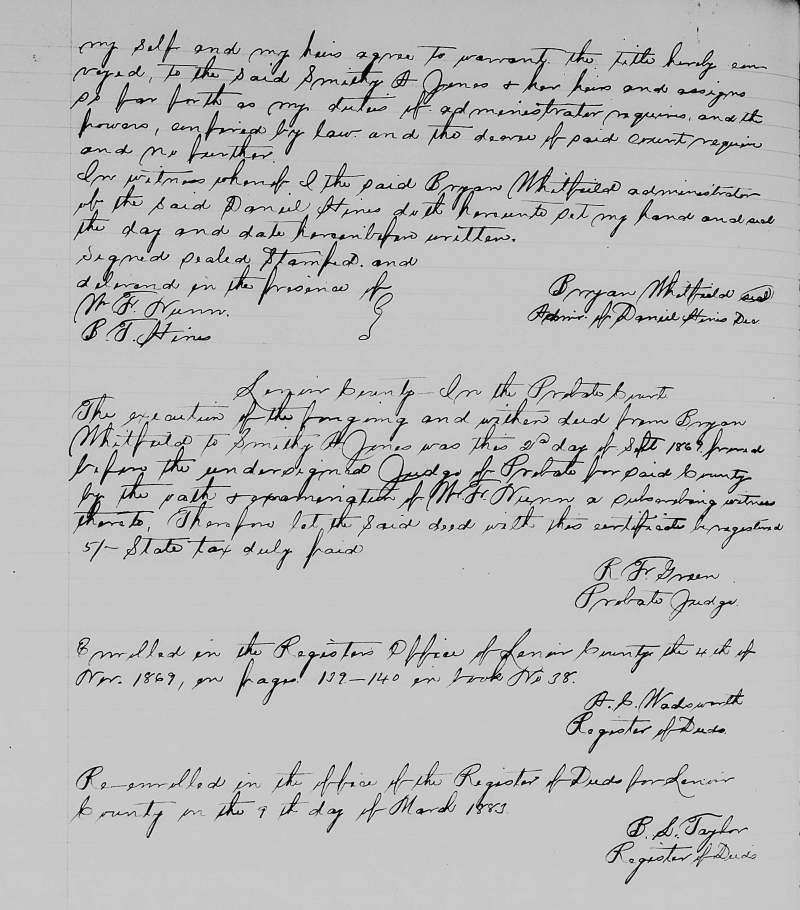 my self and my heirs agree to warrant the title hereby con-
veyed, to the said Smithy A Jones & her heirs and assigns
so far forth as my duties of administrator requires, and the
powers, confered by law and the decree of said court require
and no further.
In witness whereof I the said Bryan Whitfield administrator
of the said Daniel Hines doth hereunto set my hand and seal
the day and date hereinbefore written.
Signed sealed Stamped and
delivered in the presence of
W. F. Nunn.
B T. Hines
Bryan Whitfield seal
Admr. of Daniel Hines Dec
Lenoir County - In the Probate Court
The execution of the foregoing and within deed from Bryan
Whitfield to Smithy A Jones was this 2d day of Sept 1869 proved
before the undersigned Judge of Probate for said County
by the oath & examination of W. F. Nunn a subscribing witness
thereto, Therefore let the said deed with this certificate be registered
5/- State tax duly paid
R. F. Green
Probate Judge.
Enrolled in the Registers Office of Lenoir County the 4th of
Nov. 1869, on pages 139-140 in book No 38.
A. C. Wadsworth
Register of Deeds.
Re-enrolled in the office of the Register of Deeds for Lenoir
County on the 9th day of March 1883.
B. L. Taylor
Register of Deeds